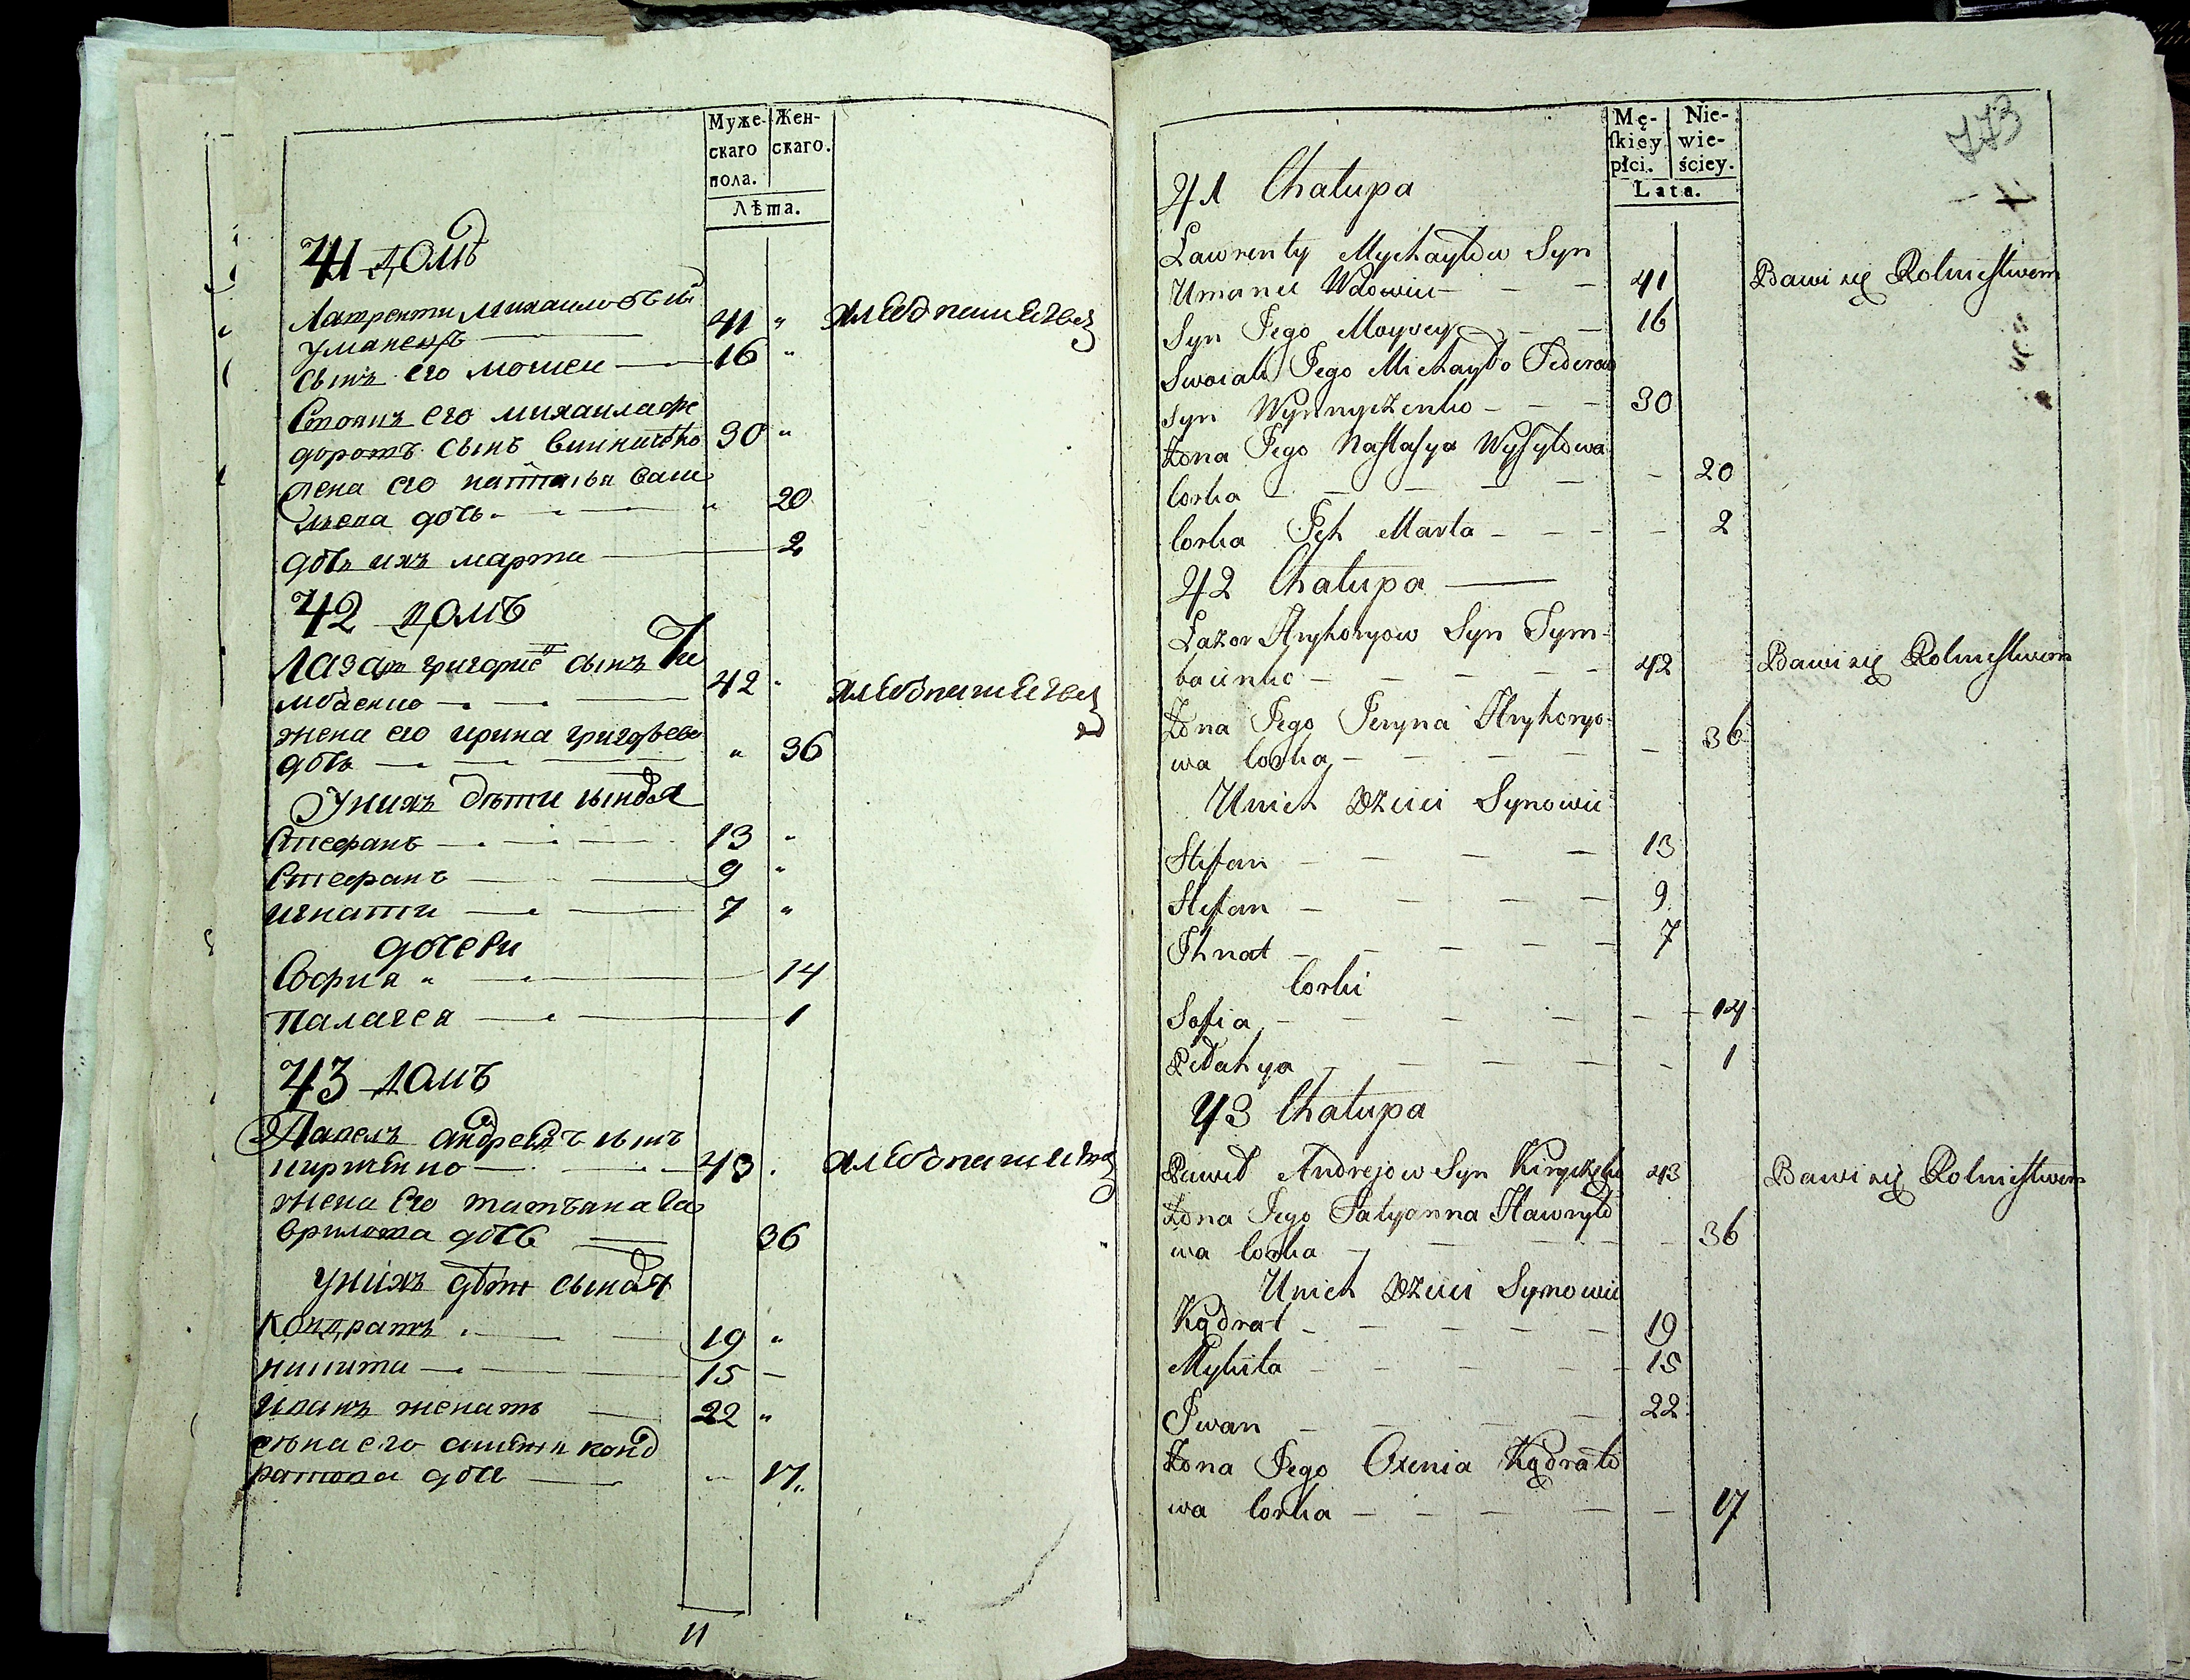 Муже-
скаго
пола.
Жен-
скаго.
Лѣта.
41 домъ
Лаврентій Михаиловъ сынъ
уманецъ 41 " хлебопашецъ
сынъ его мошеи 16 "
Своякъ его михаила фе
доровъ сынъ винниченко 30 "
жена его настасья васи
лиева дочь " 20
дочь ихъ марта 2
42 домъ
Лазаръ григориевъ сынъ
42 " хлебопашецъ
жена его ирина григорьева
дочь " 36
У нихъ дѣти сыновья
Стефанъ 13 "
Стефанъ 9 "
игнатий 7 "
дочери
София " 14
палагея 1
43 домъ
Павелъ андреевъ сынъ
кириченко 43 . хлебопашецъ
жена его татьяна га
врилова дочь 36
у нихъ дѣти сыновья
кондратъ 19 "
никита 15
иванъ женатъ 22 "
жена его конд
ратова дочь " 17
11
773
Mę-
skiey
płci.
Nie-
wie-
ściey.
Lata.
41 Chałupa
Lawrenty Mychayłow Syn
Umanec Wdowiec 41 Bawi się Rolnictwem
Syn Jego Moysey 16
Swoiak Jego Michayło Fedorow
Syn Wynnyczenko 30
Żona Jego Nastasya Wysyłowa
Corka 20
Corka Jch Marta 2
42 Chałupa
Łazor Hryhoryow Syn Tym-
42 Bawi się Rolnictwem
Żona Jego Jeryna Hryhoryo-
wa Corka 36
Unich Dzieci Synowie
Stefan 13
Stefan 9
Jhnat 7
Corki
Sofia 14
Pełahya 1
43 Chałupa
Paweł Andrejow Syn Kiryczenko 43 Bawi się Rolnictwem
Żona Jego Tatyanna Hawryło
wa Corka 36
Unich Dzieci Synowie
Kądrat 19
Mykita 15
Jwan 22
Żona Jego Oxenia Kądrato
wa Corka 17